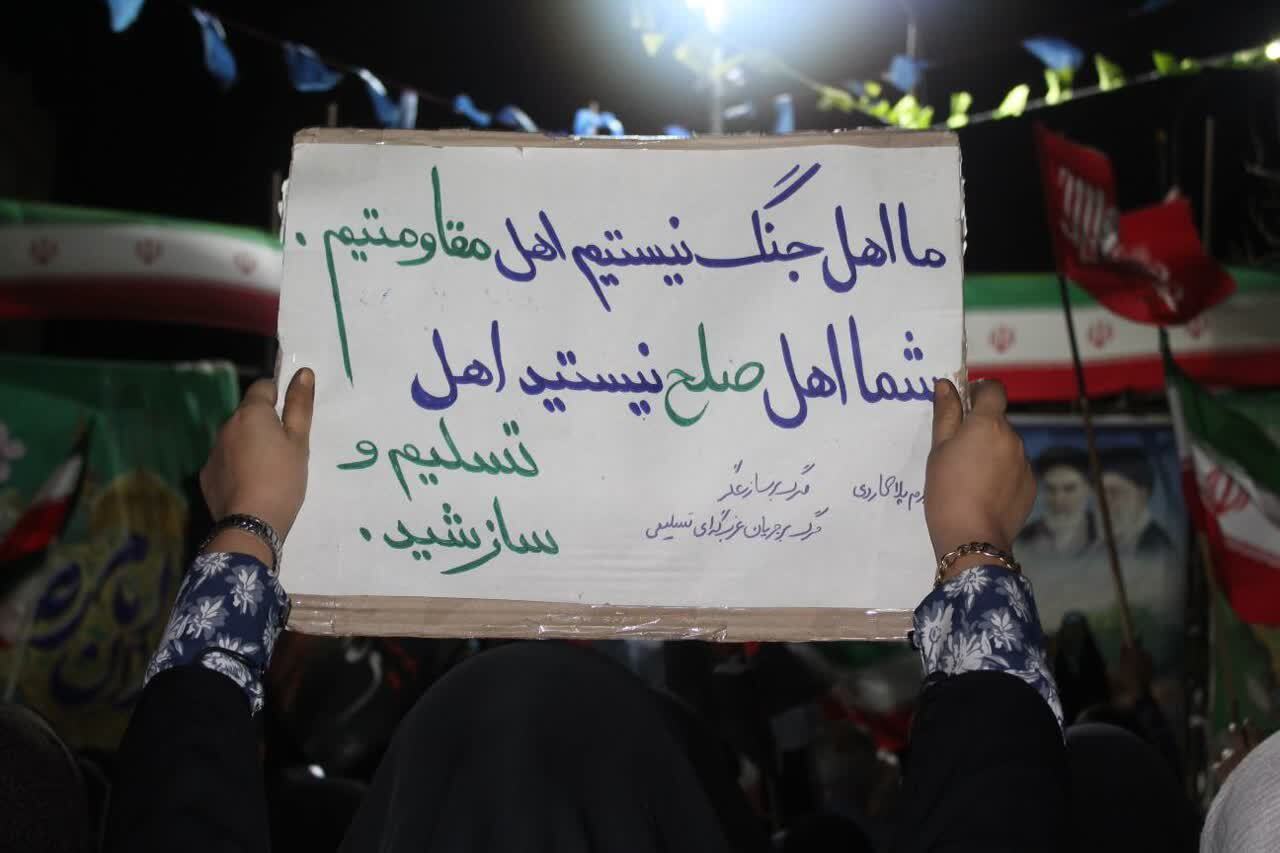 ما اهل جنگ نیستیم اهل مقاومتیم.
شما اهل صلح نیستید اهل
تسلیم و
سازشید.
مرگ بر سازشگر
مرگ بر جریان غرب گدای تسلیمی